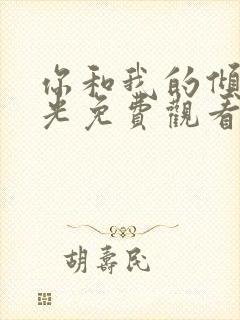 你和我的傾
光免費觀看
胡壽民